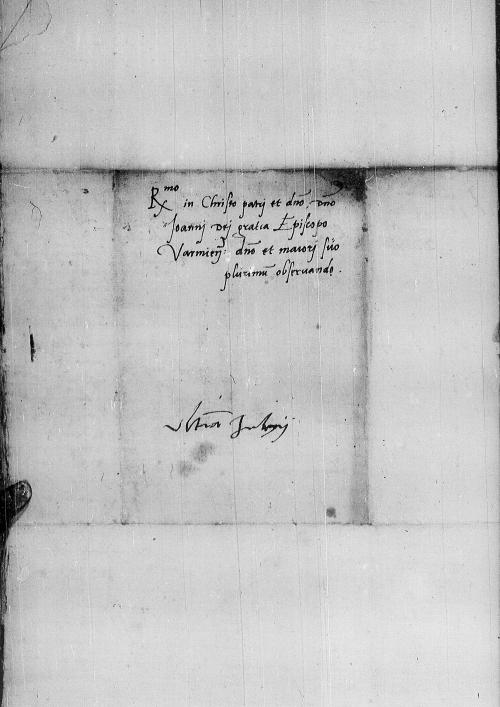 R^mo in Christo patri et dno, dno
Joannj Dej gratia Episcopo
Varmieñ: dno et maiorj suo
plurimū obseruando.
vltīa Julij